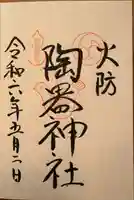 火防
陶器神社
令和六年五月二日